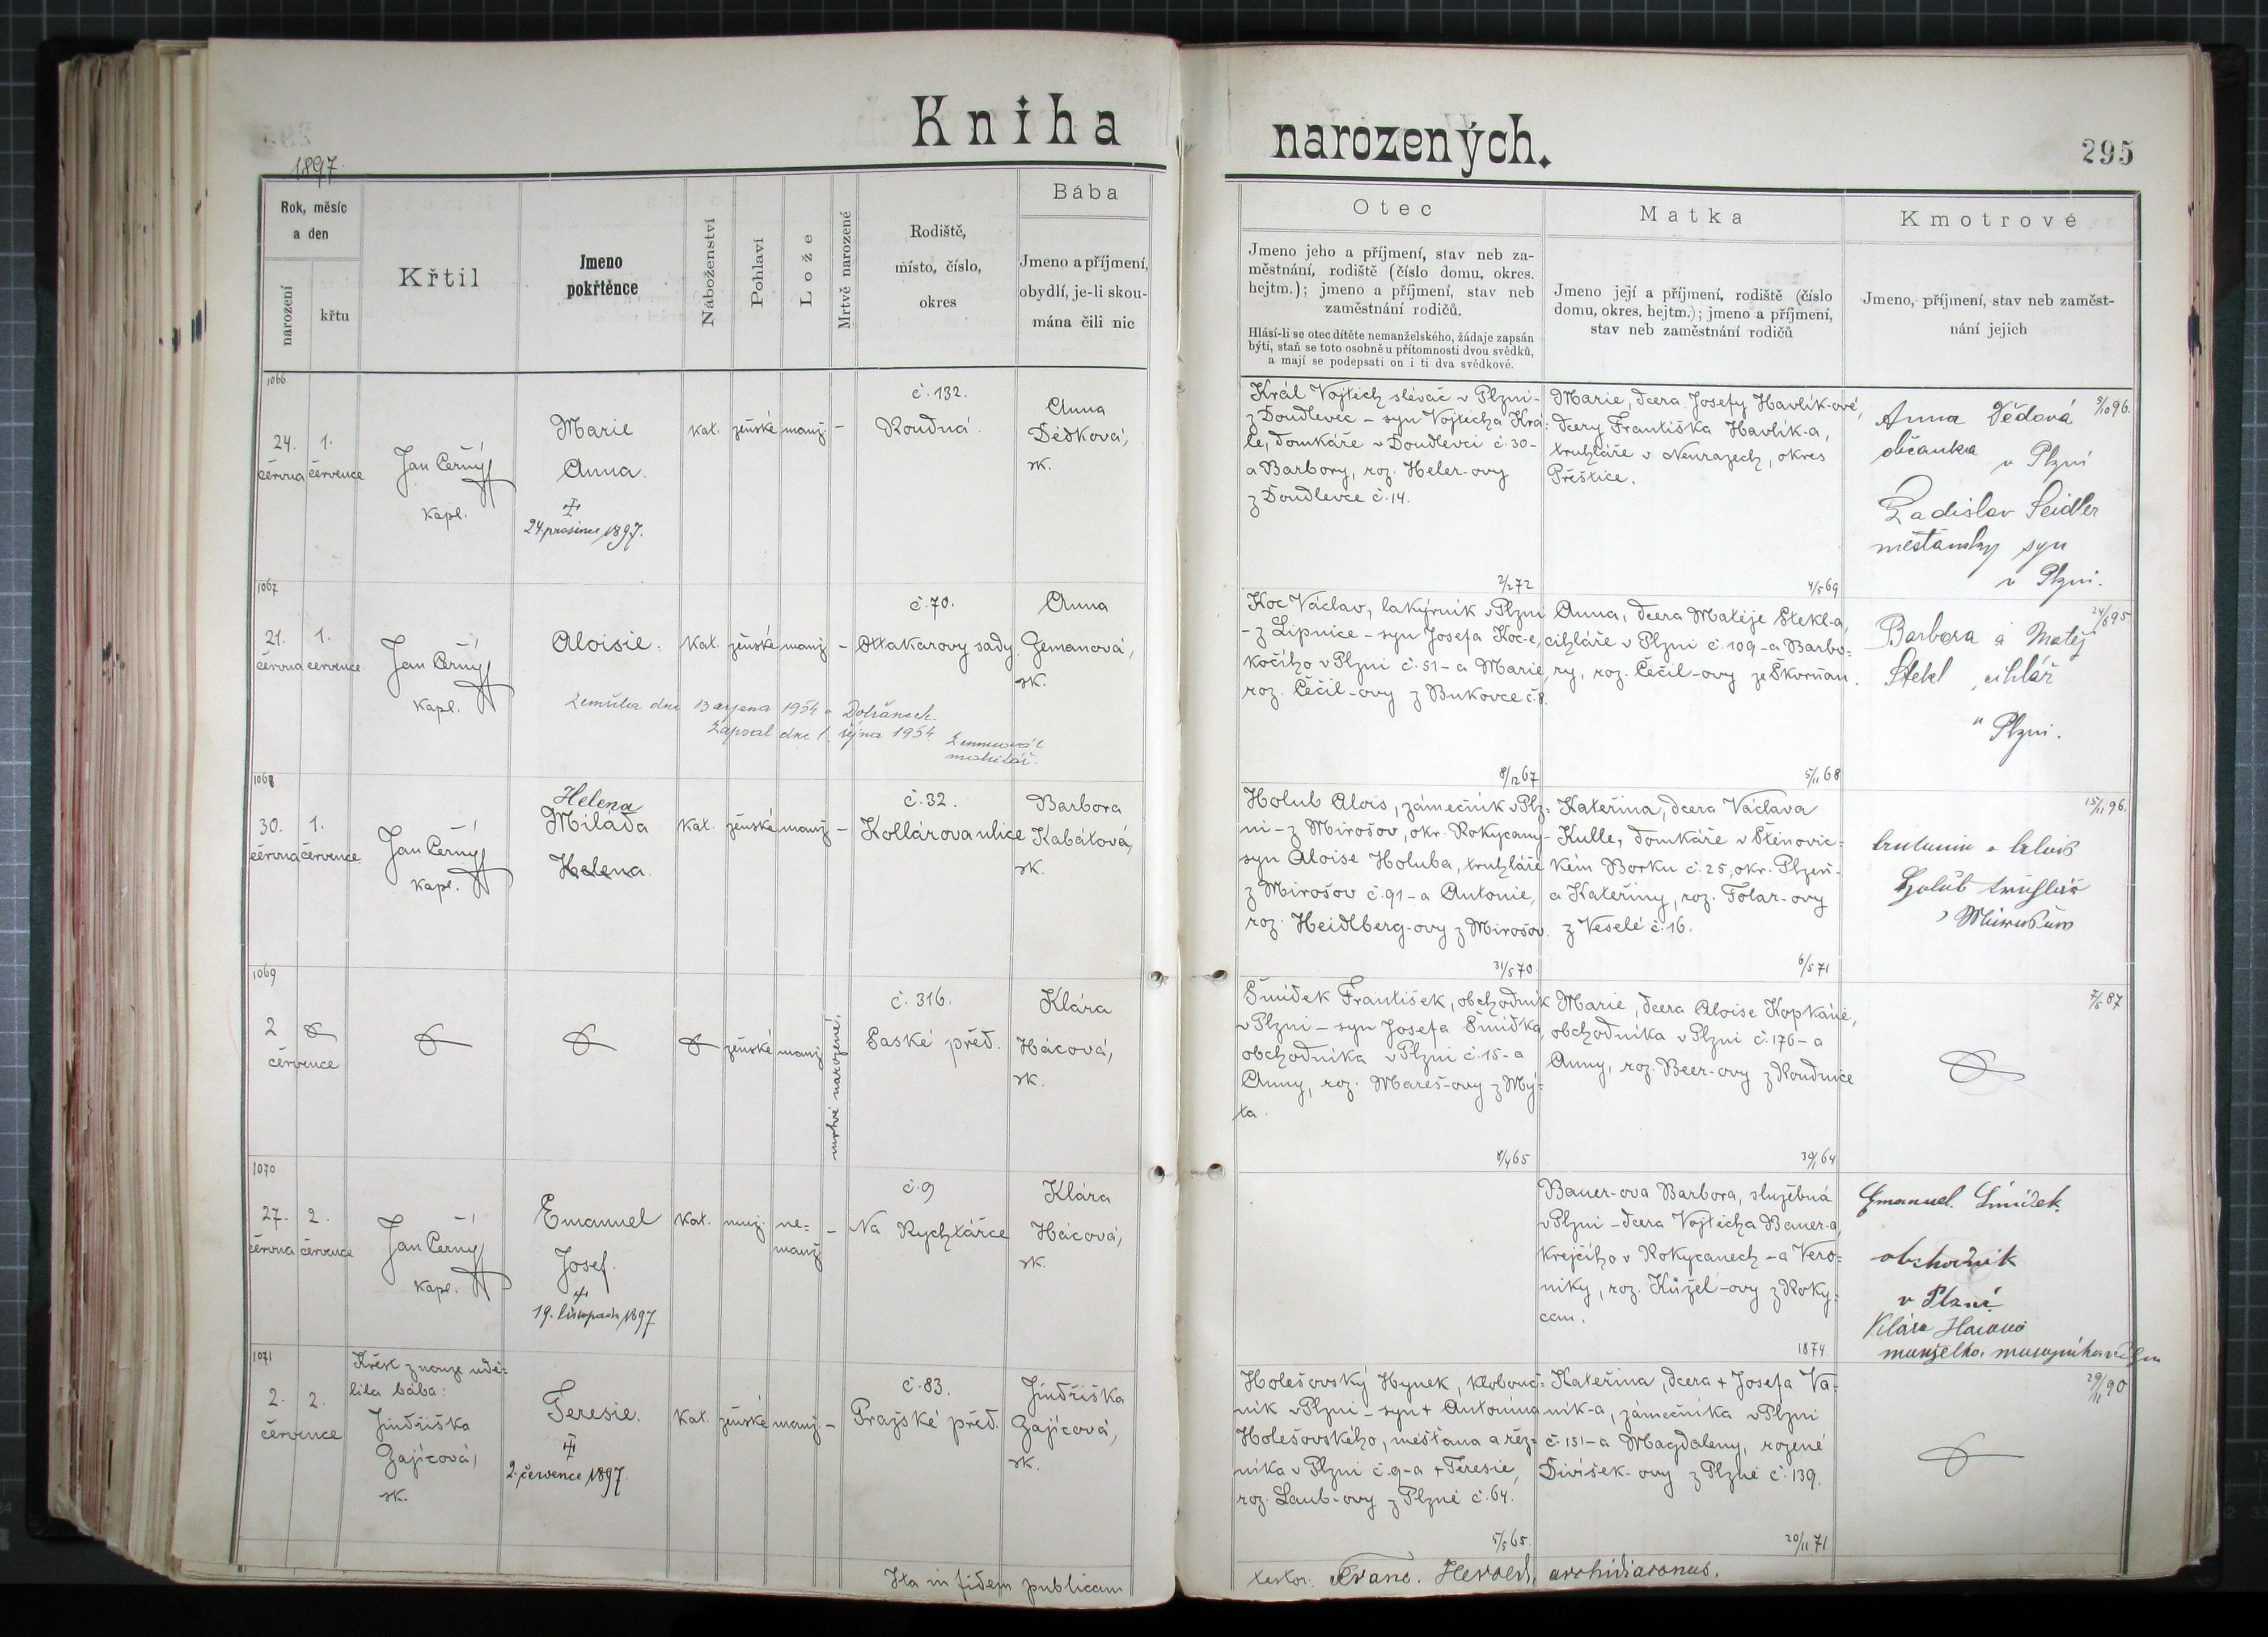 Kniha
narozených.
295
1897.
Rok, měsíc
a den
narození
křtu
Křtil
Jmeno
pokřtěnce
Náboženství
Pohlaví
Lože
Mrtvě narozené
Rodiště,
místo, číslo,
okres
Bába
Jmeno a příjmení,
obydlí, je-li skou-
mána čili nic
Otec
Jmeno jeho a příjmení, stav neb za-
městnání, rodiště (číslo domu, okres.
hejtm.); jmeno a příjmení, stav neb
zaměstnání rodičů.
Hlásí-li se otec dítěte nemanželského, žádaje zapsán
býti, staň se toto osobně u přítomnosti dvou svědků,
a mají se podepsati on i ti dva svědkové.
Matka
Jmeno její a příjmení, rodiště (číslo
domu, okres. hejtm.); jmeno a příjmení,
stav neb zaměstnání rodičů
Kmotrové
Jmeno, příjmení, stav neb zaměst-
nání jejich
1066
24.
června
1.
července
Jan Černý
kapl.
Marie
Anna.
24. prosince 1897.
kat.
ženské
manž.
-
č. 132.
Roudná.
Anna
Dědková,
zk.
Král Vojtěch slévač v Plzni-
z Doudlevec - syn Vojtěcha Krá-
le, domkáře v Doudlevci č. 30-
a Barbory, roz. Heler-ovy
z Doudlevce č. 14.
2/2 72
Marie, dcera Josefy Havlík-ové,
dcery Františka Havlík-a,
truhláře v Neurazech, okres
Přeštice.
4/5 69
9/10 96.
Anna Dědová
občanka
v Plzni
Ladislav Seidler
měšťanský syn
v Plzni.
1067
21.
června
1.
července
Jan Černý
kapl.
Aloisie.
kat.
ženské
manž
-
č. 70.
Ottakarovy sady.
Anna
Zemanová,
zk.
Zemřela dne 13 srpna 1954 v Dobřanech.
Zapsal dne 1. října 1954.
Koc Václav, lakýrník v Plzni
- z Lipnice - syn Josefa Koc-e,
kočího v Plzni č. 51 - a Marie,
roz. Čečil-ovy z Bukovce č. 8.
8/12 67
Anna, dcera Matěje Štekl-a,
cihláře v Plzni č. 109 - a Barbo-
ry, roz. Čečil-ovy ze Škvrňan.
5/11 68
24/6 95
Barbora a Matěj
Štekl, cihlář
v Plzni.
1068
30.
června
1.
července
Jan Černý
kapl.
Helena
Miláda
Helena.
kat.
ženské
manž
-
č. 32.
Kollárova ulice
Barbora
Kabátová,
zk.
Holub Alois, zámečník v Plz-
ni - z Mirošov, okr. Rokycany-
syn Aloise Holuba, truhláře
z Mirošov č. 91 - a Antonie,
roz. Heidlberg-ovy z Mirošov.
31/5 70.
Kateřina, dcera Václava
Kulle, domkáře v Štěnovic-
kém Borku č. 25, okr. Plzeň-
a Kateřiny, roz. Tolar-ovy
z Veselé č. 16.
6/5 71
15/11 96.
Holub truhlář
1069
2
července
ženské
manž
mrtvě narozené.
č. 316.
Saské před.
Klára
Hácová,
zk.
Šmídek František, obchodník
v Plzni - syn Josefa Šmídka,
obchodníka v Plzni č. 15 - a
Anny, roz. Mareš-ovy z Mý-
ta.
8/4 65
Marie, dcera Aloise Kopkáně,
obchodníka v Plzni č. 176 - a
Anny, roz. Beer-ovy z Roudnice
30/1 64
7/6 87
1070
27.
června
2.
července
Jan Černý
kapl.
Emanuel
Josef.
19. listopadu 1897
kat.
muž.
ne-
manž
-
č. 9
Na Rychtářce
Klára
Hácová,
zk.
Bauer-ova Barbora, služebná
v Plzni - dcera Vojtěcha Bauer-a,
krejčího v Rokycanech - a Vero-
niky, roz. Kůžel-ovy z Roky-
can.
1874.
Emanuel Šmídek
obchodník
v Plzni
Klára Hacová
manželka
1071
2.
2.
července
Křest z nouze udě-
lila bába:
Jindřiška
Zajícová,
zk.
Teresie.
2. července 1897.
kat.
ženské
manž
-
č. 83.
Pražské před.
Jindřiška
Zajícová,
zk.
Holešovský Hynek, klobouč-
ník v Plzni - syn + Antonína
Holešovského, měšťana a řez-
níka v Plzni č. 9 - a + Teresie,
roz. Laub-ovy z Plzně č. 64.
5/5 65.
Kateřina, dcera + Josefa Va-
ník-a, zámečníka v Plzni
č. 151 - a Magdaleny, rozené
Divíšek-ovy z Plzně č. 139.
20/11 71
29/11 90
Ita in fidem publicam
testor: Franc. Herold, archidiaconus.